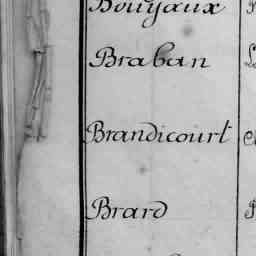 Bouyaux
Braban
Brandicourt
Brard